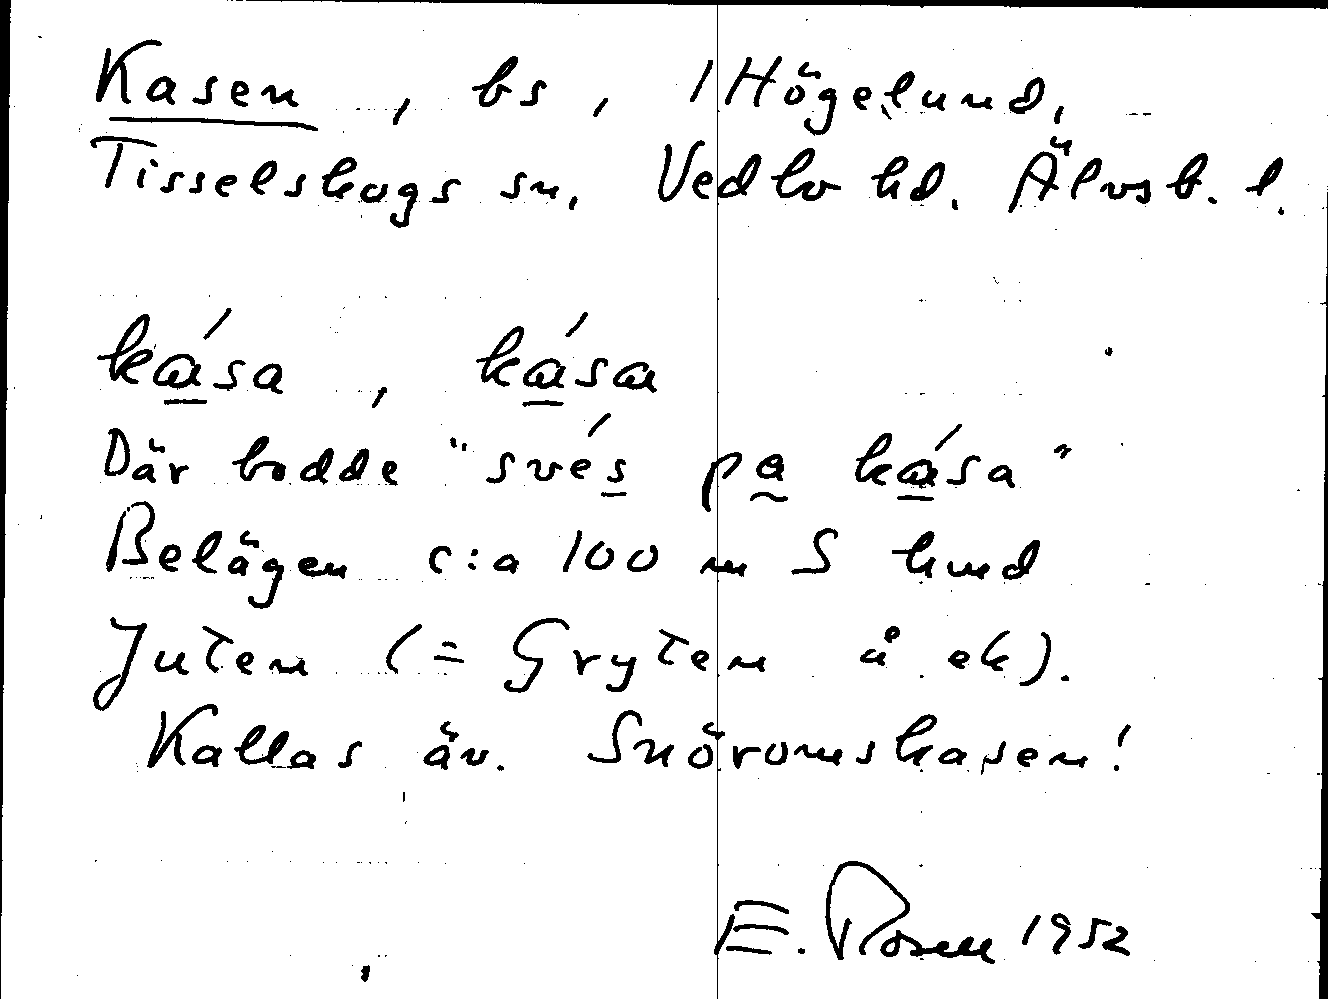 Kasen, bs, 1 Högelund,
Tisselskogs sn, Vedbo hd. Älvsb. l.
ká̱sa, ká̱sa
Där bodde "své​s̱ pa̰ ká̱sa"
Belägen c:a 100 m S hmd
Juten (= Gryten å ek).
Kallas äv. Snöromskasen!
E. Rosen 1952